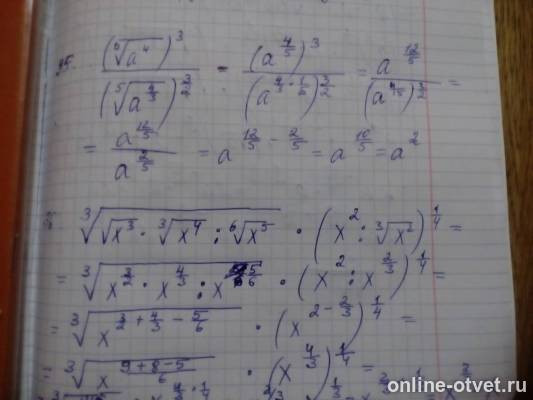 95. (⁵√a⁴)³ / (⁵√a^(4/3))^(3/2) = (a^(4/5))³ / (a^(4/3 · 1/5))^(3/2) = a^(12/5) / (a^(4/15))^(3/2) =
= a^(12/5) / a^(2/5) = a^(12/5 − 2/5) = a^(10/5) = a²
³√(√x³ · ³√x⁴ : ⁶√x⁵) · (x² : ³√x²)^(1/4) =
= ³√(x^(3/2) · x^(4/3) : x^(5/6)) · (x² : x^(2/3))^(1/4) =
= ³√(x^(3/2 + 4/3 − 5/6)) · (x^(2 − 2/3))^(1/4) =
= ³√(x^((9+8−5)/6)) · (x^(4/3))^(1/4) =
online-otvet.ru